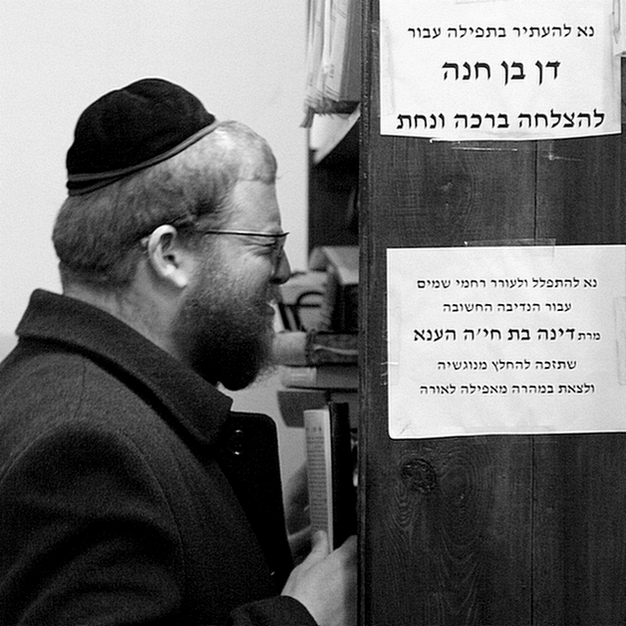 נא להעתיר בתפילה עבור
דן בן חנה
להצלחה ברכה ונחת
נא להתפלל ולעורר רחמי שמים
עבור הנדיבה החשובה
מרת דינה בת חי׳ה הענא
שתזכה להחלץ מנוגשיה
ולצאת במהרה מאפילה לאורה